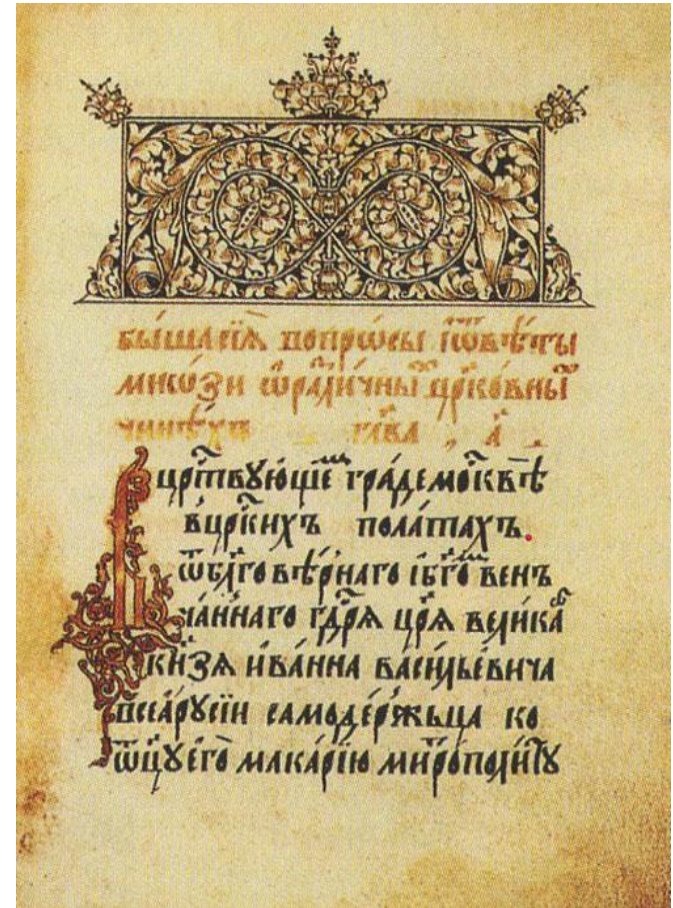 бы́ша сїѧ̀ вопрѡ́сы ѿвѣ́ты
мнѡ́зи ѡ҆ра́личны црко́вны
чинѣ́хъ глава а҃
Вцрⷭ҇твꙋющеⷨ гра́де москвѣ̀
вцрⷭ҇кихъ пола́тахъ.
ѿбл҃говѣ́рнаго ібг҃оⷨ вен
ча́ннаго гдⷭ҇рѧ цр҃ѧ вели́каⷢ҇
кнѧ҃зѧ ива́нна васи́льевича
всеа́рꙋсїи самоде́ржьца ко
ѿцꙋ̀ его̀ мака́рїю митрополи́тꙋ